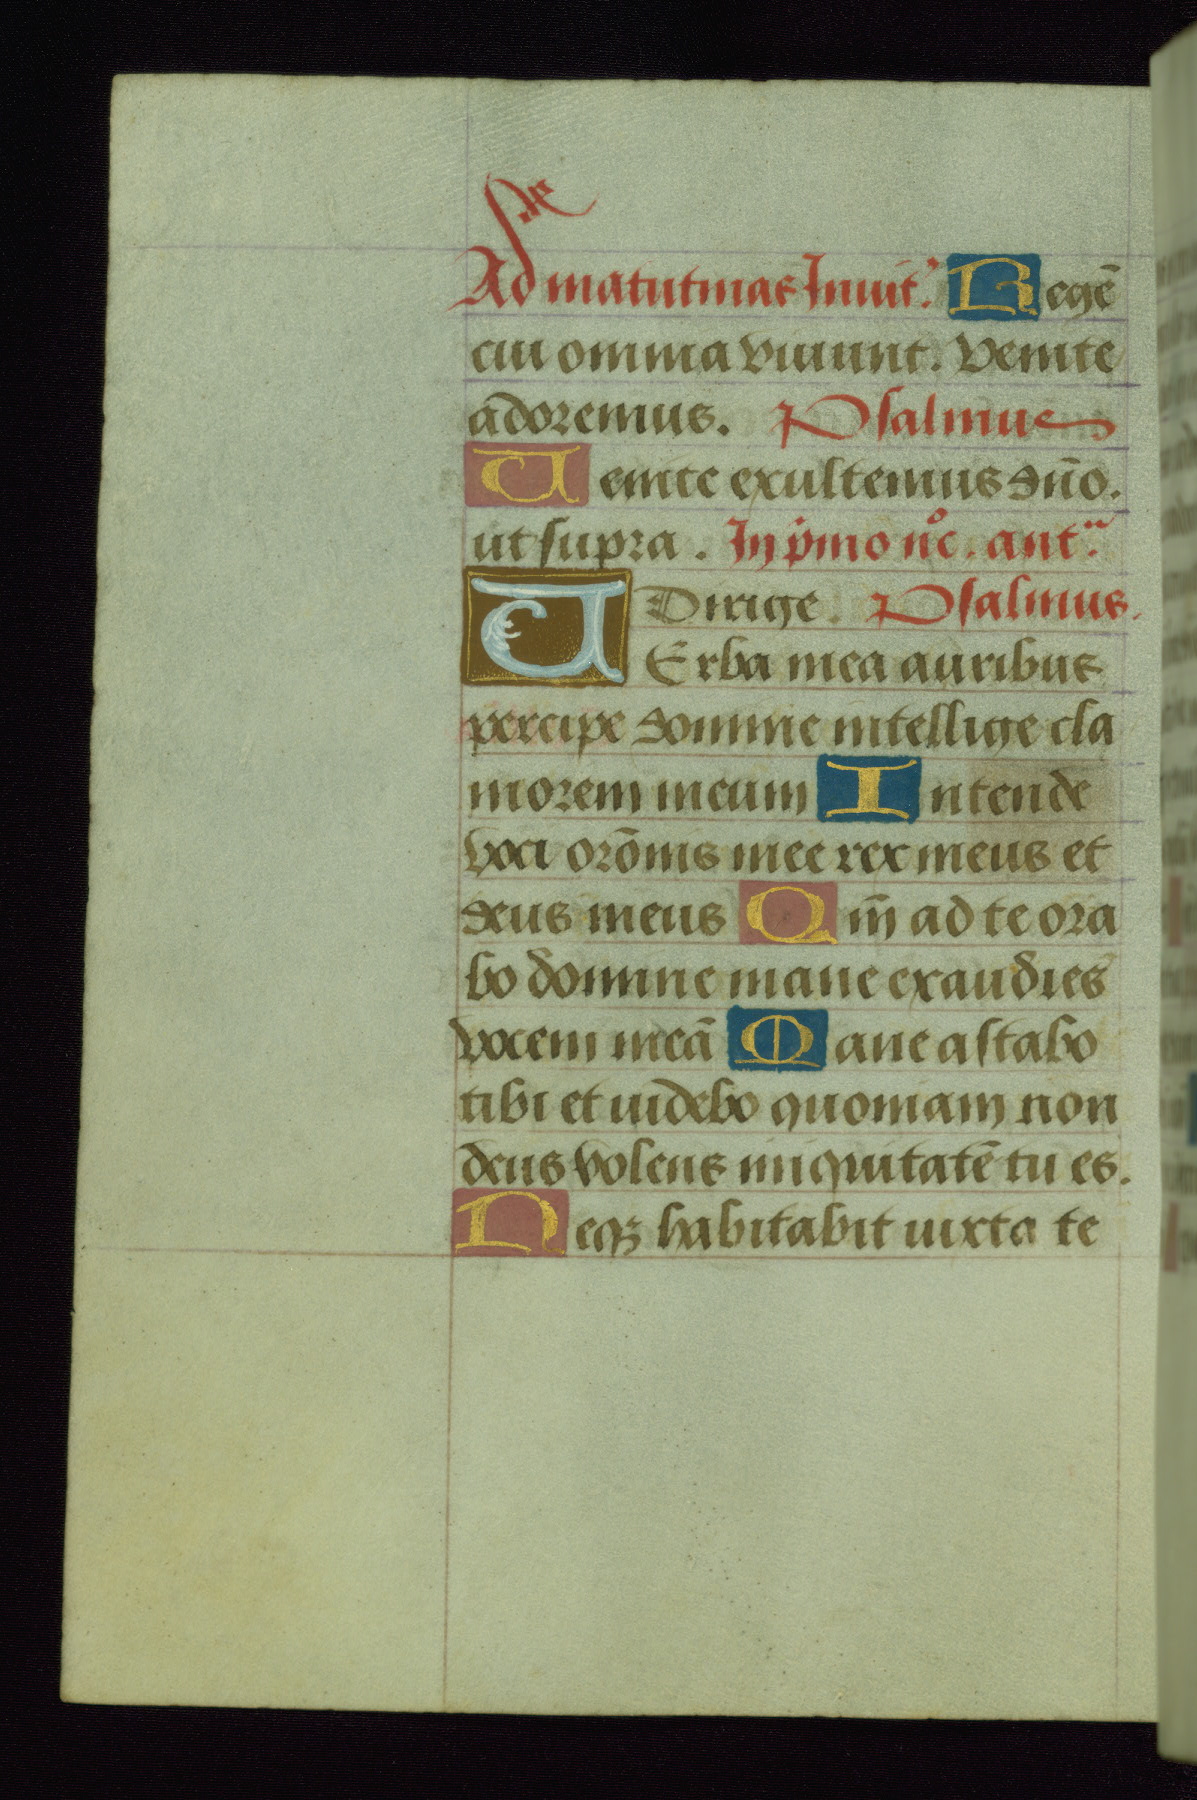 Ad matutinas Inuit. Regē
cui omnia viuunt. Venite
adoremus. Psalmus
Uenite exultemus dn̄o.
ut supra. In p̄mo noc. ant.
Dirige. Psalmus.
UErba mea auribus
percipe domine intellige cla
morem meum Intende
voci orōnis mee rex meus et
deus meus Qm̄ ad te ora
bo domine mane exaudies
vocem meā Mane astabo
tibi et uidebo quoniam non
deus volens iniquitatē tu es.
Neqꝫ habitabit iuxta te